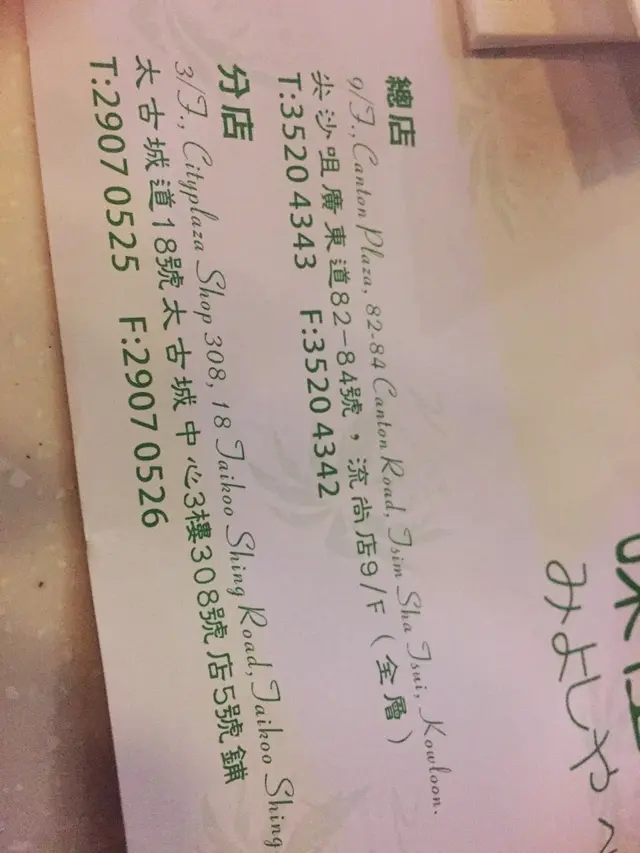 みよしや
總店
9/F., Canton Plaza, 82-84 Canton Road, Tsim Sha Tsui, Kowloon.
尖沙咀廣東道82-84號，流尚店9/F（全層）
T:3520 4343 F:3520 4342
分店
3/F., Cityplaza Shop 308, 18 Taikoo Shing Road, Taikoo Shing
太古城道18號太古城中心3樓308號店5號鋪
T:2907 0525 F:2907 0526